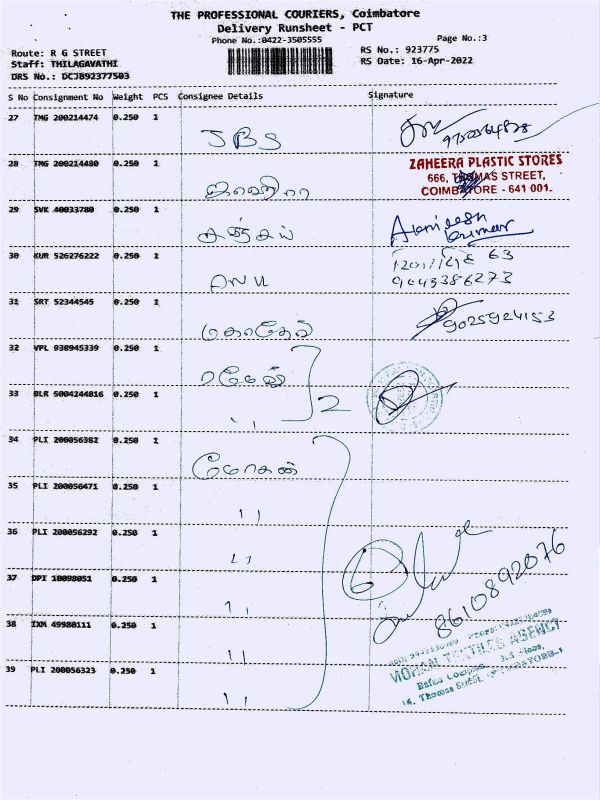 THE PROFESSIONAL COURIERS, Coimbatore
Delivery Runsheet - PCT
Phone No.:0422-3505555
Page No.:3
Route: R G STREET
RS No.: 923775
Staff: THILAGAVATHI
RS Date: 16-Apr-2022
DRS No.: DCJB92377503
S No Consignment No Weight PCS Consignee Details Signature
27 TMG 200214474 0.250 1 JBS
28 TMG 200214480 0.250 1
ZAHEERA PLASTIC STORES
666, THOMAS STREET,
COIMBATORE - 641 001.
29 SVK 40033780 0.250 1 சஞ்சய்
30 KUR 526276222 0.250 1 ANU
9043386273
31 SRT 52344545 0.250 1 9025924153
32 VPL 930945339 0.250 1 ரமேஷ்
33 BLR 5004244816 0.250 1 " 2
34 PLI 200056382 0.250 1 மோகன்
35 PLI 200056471 0.250 1 "
36 PLI 200056292 0.250 1 "
6
8610892076
37 DPI 10098051 0.250 1 "
38 IXM 49980111 0.250 1 "
MOHAN TEXTILES AGENCY
39 PLI 200056323 0.250 1 "